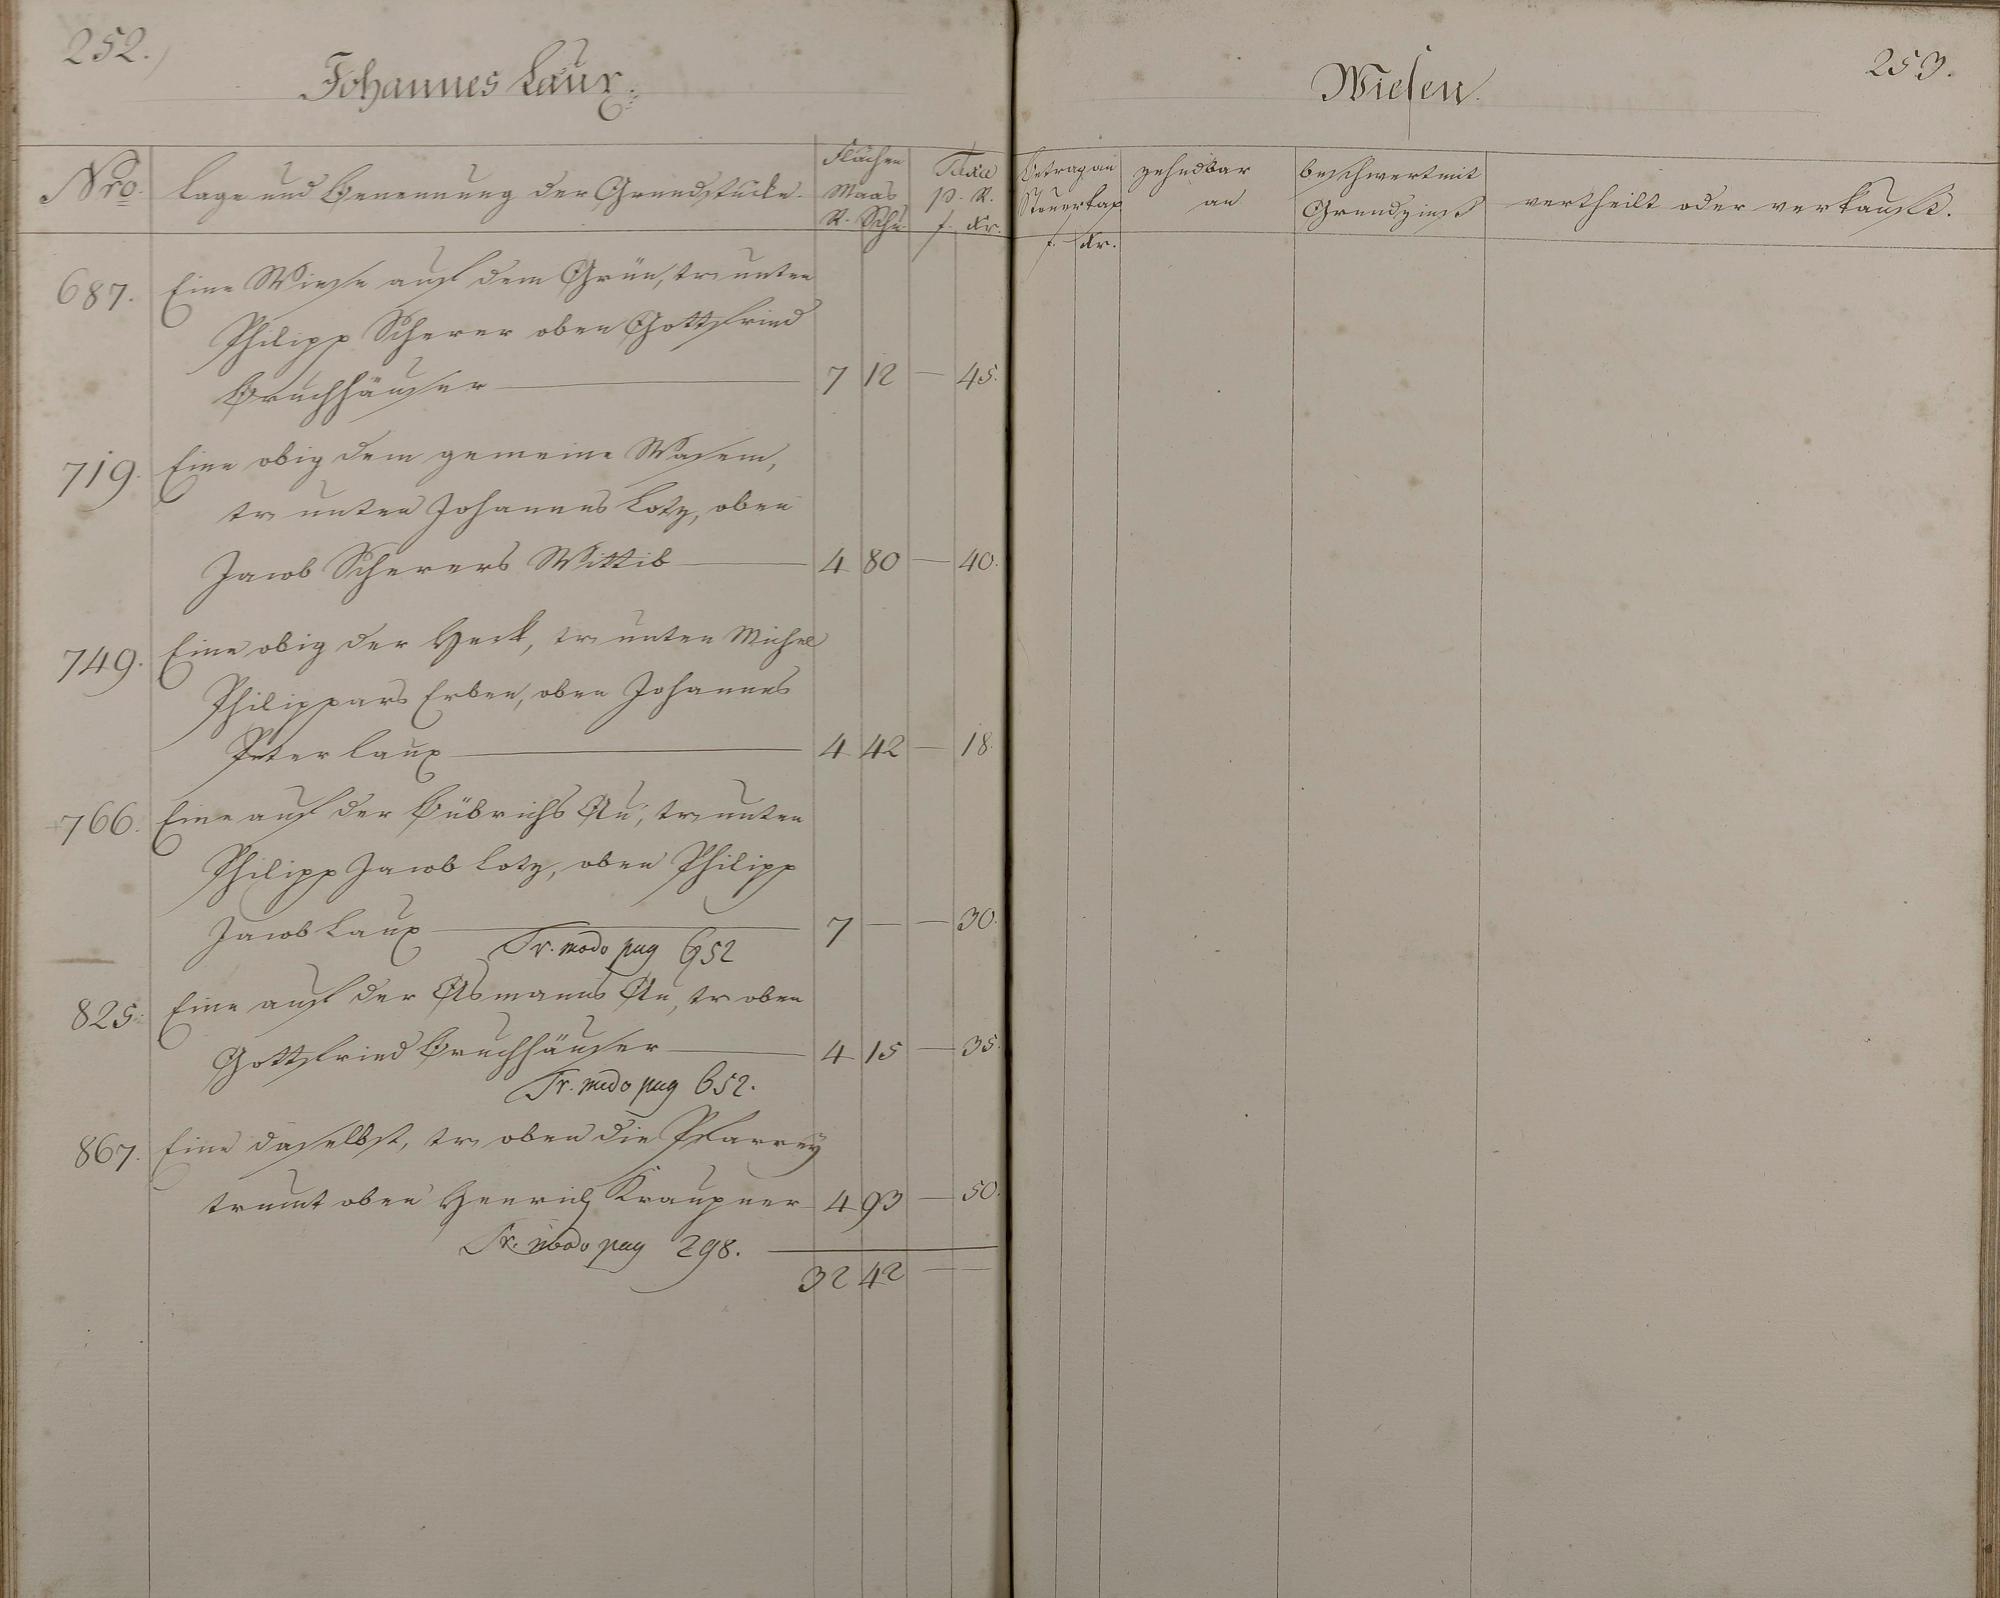 252.
Johannes Laux.
Nro. Lage und Benennung der Grundstücke. Flächen Maas R. Schu. Taxe p. R. f. Kr.
687. Eine Wiese auf dem Grün, tr. unten
Philipp Scherer oben Gottfried
Bruchhäuser — 7 12 — 45.
719. Eine obig dem gemeine Wasem,
tr. unten Johannes Lotz, oben
Jacob Scherers Wittib — 4 80 — 40.
749. Eine obig der Heck, tr. unten Michel
Philippars Erben, oben Johannes
Peter Laux — 4 42 — 18.
766. Eine auf der Bübrichs Au, tr. unten
Philipp Jacob Lotz, oben Philipp
Jacob Laux — 7 — — 30.
Tr. modo pag 652
825. Eine auf der Asmanns Au, tr. oben
Gottfried Bruchhäuser — 4 15 — 35.
Tr. modo pag 652.
867. Eine daselbst, tr. oben die Pfarrey
trumt oben Henrich Kraupner 4 93 — 50.
Tr. modo pag 298.
32 42 — —
253.
Wiesen.
Betrag an Steuerkap. f. Kr. zehndbar an beschwert mit Grundzinß vertheilt oder verkauft.